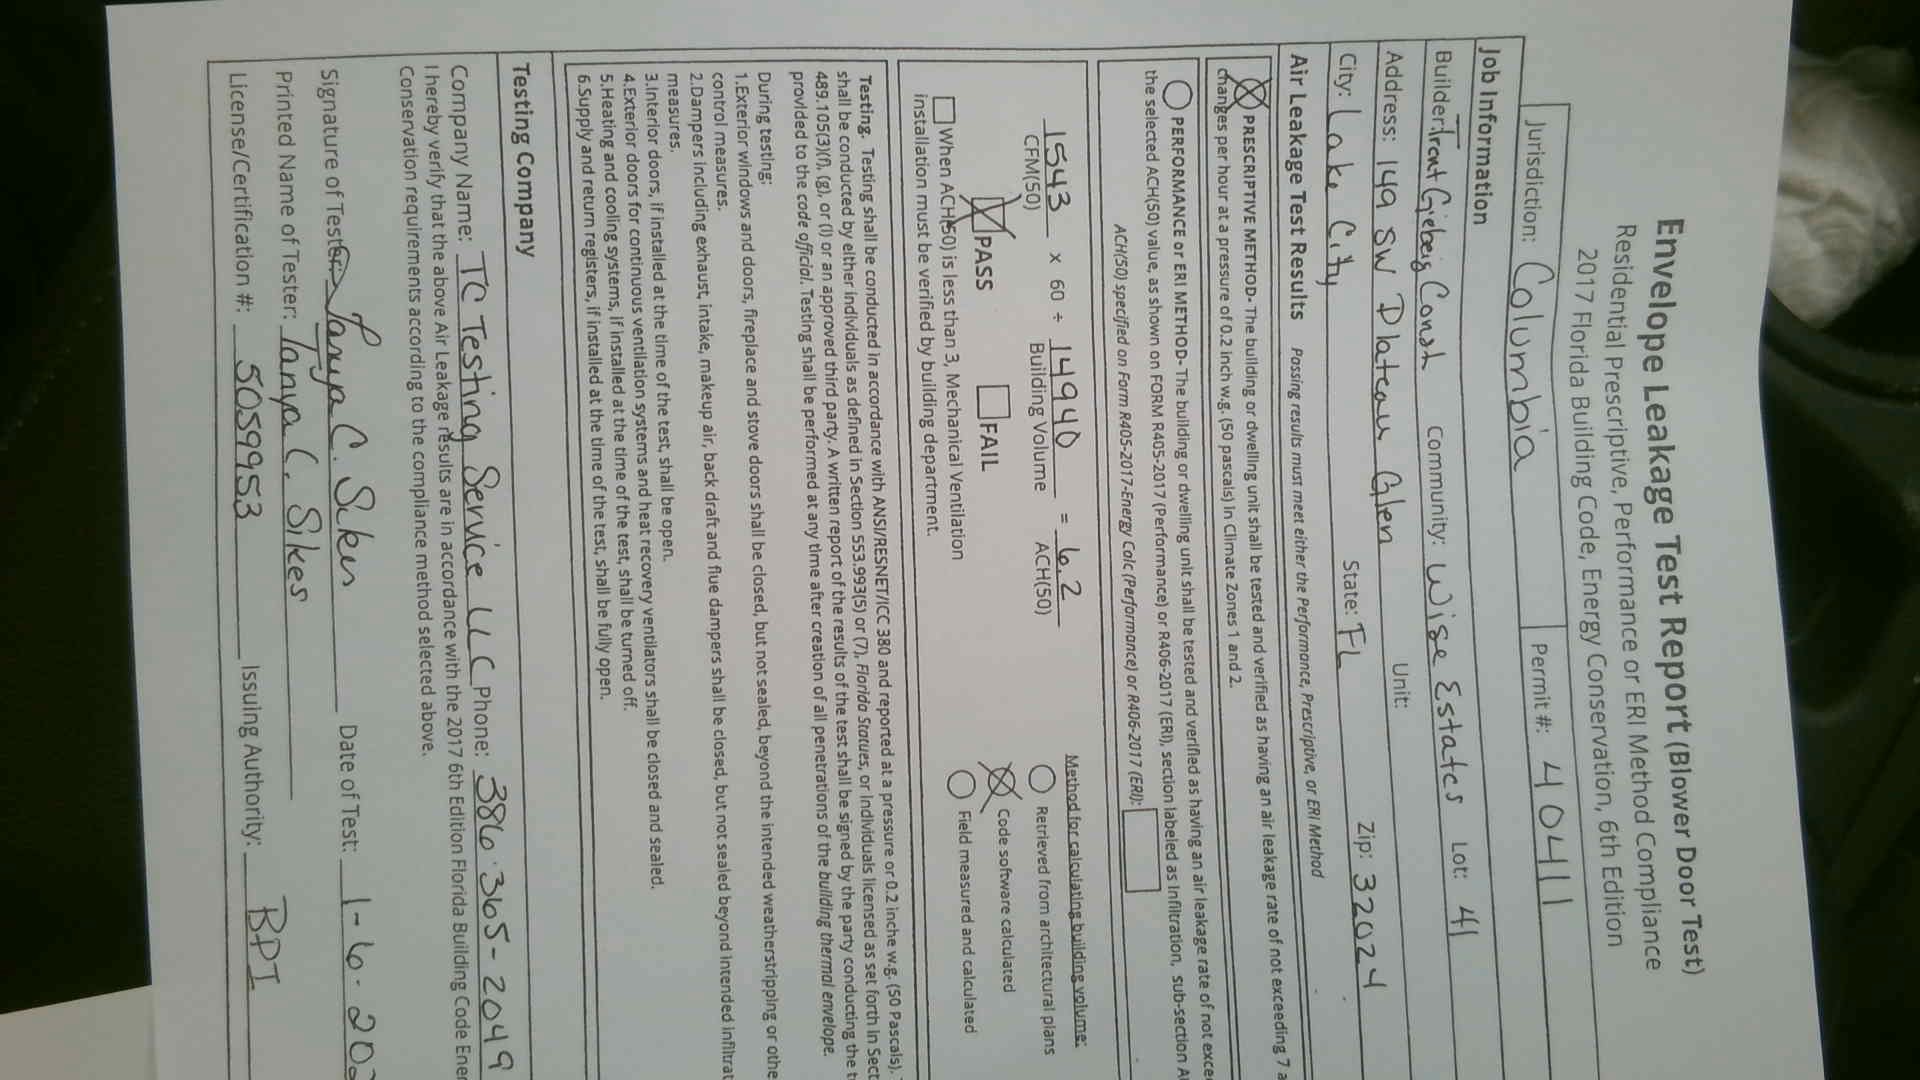 Envelope Leakage Test Report (Blower Door Test)
Residential Prescriptive, Performance or ERI Method Compliance
2017 Florida Building Code, Energy Conservation, 6th Edition
Jurisdiction: Columbia Permit #: 40411
Job Information
Builder: Trent Giebeig Const Community: Wise Estates Lot: 41
Address: 149 SW Plateau Glen Unit:
City: Lake City State: FL Zip: 32024
Air Leakage Test Results Passing results must meet either the Performance, Prescriptive, or ERI Method
PRESCRIPTIVE METHOD- The building or dwelling unit shall be tested and verified as having an air leakage rate of not exceeding 7 a
changes per hour at a pressure of 0.2 inch w.g. (50 pascals) in Climate Zones 1 and 2.
PERFORMANCE or ERI METHOD- The building or dwelling unit shall be tested and verified as having an air leakage rate of not exce
the selected ACH(50) value, as shown on FORM R405-2017 (Performance) or R406-2017 (ERI), section labeled as Infiltration, sub-section A
ACH(50) specified on Form R405-2017-Energy Calc (Performance) or R406-2017 (ERI):
1543 x 60 ÷ 14940 = 6.2
CFM(50) Building Volume ACH(50)
PASS FAIL
When ACH(50) is less than 3, Mechanical Ventilation
installation must be verified by building department.
Method for calculating building volume:
Retrieved from architectural plans
Code software calculated
Field measured and calculated
Testing. Testing shall be conducted in accordance with ANSI/RESNET/ICC 380 and reported at a pressure or 0.2 inche w.g. (50 Pascals).
shall be conducted by either individuals as defined in Section 553.993(5) or (7), Florida Statues, or individuals licensed as set forth in Sect
489.105(3)(f), (g), or (i) or an approved third party. A written report of the results of the test shall be signed by the party conducting the t
provided to the code official. Testing shall be performed at any time after creation of all penetrations of the building thermal envelope.
During testing:
1.Exterior windows and doors, fireplace and stove doors shall be closed, but not sealed, beyond the intended weatherstripping or othe
control measures.
2.Dampers including exhaust, intake, makeup air, back draft and flue dampers shall be closed, but not sealed beyond intended infiltrat
measures.
3.Interior doors, if installed at the time of the test, shall be open.
4.Exterior doors for continuous ventilation systems and heat recovery ventilators shall be closed and sealed.
5.Heating and cooling systems, if installed at the time of the test, shall be turned off.
6.Supply and return registers, if installed at the time of the test, shall be fully open.
Testing Company
Company Name: TC Testing Service LLC Phone: 386·365-2049
I hereby verify that the above Air Leakage results are in accordance with the 2017 6th Edition Florida Building Code Ener
Conservation requirements according to the compliance method selected above.
Signature of Tester: Tanya C. Sikes Date of Test: 1-6-202
Printed Name of Tester: Tanya C. Sikes
License/Certification #: 5059953 Issuing Authority: BPI